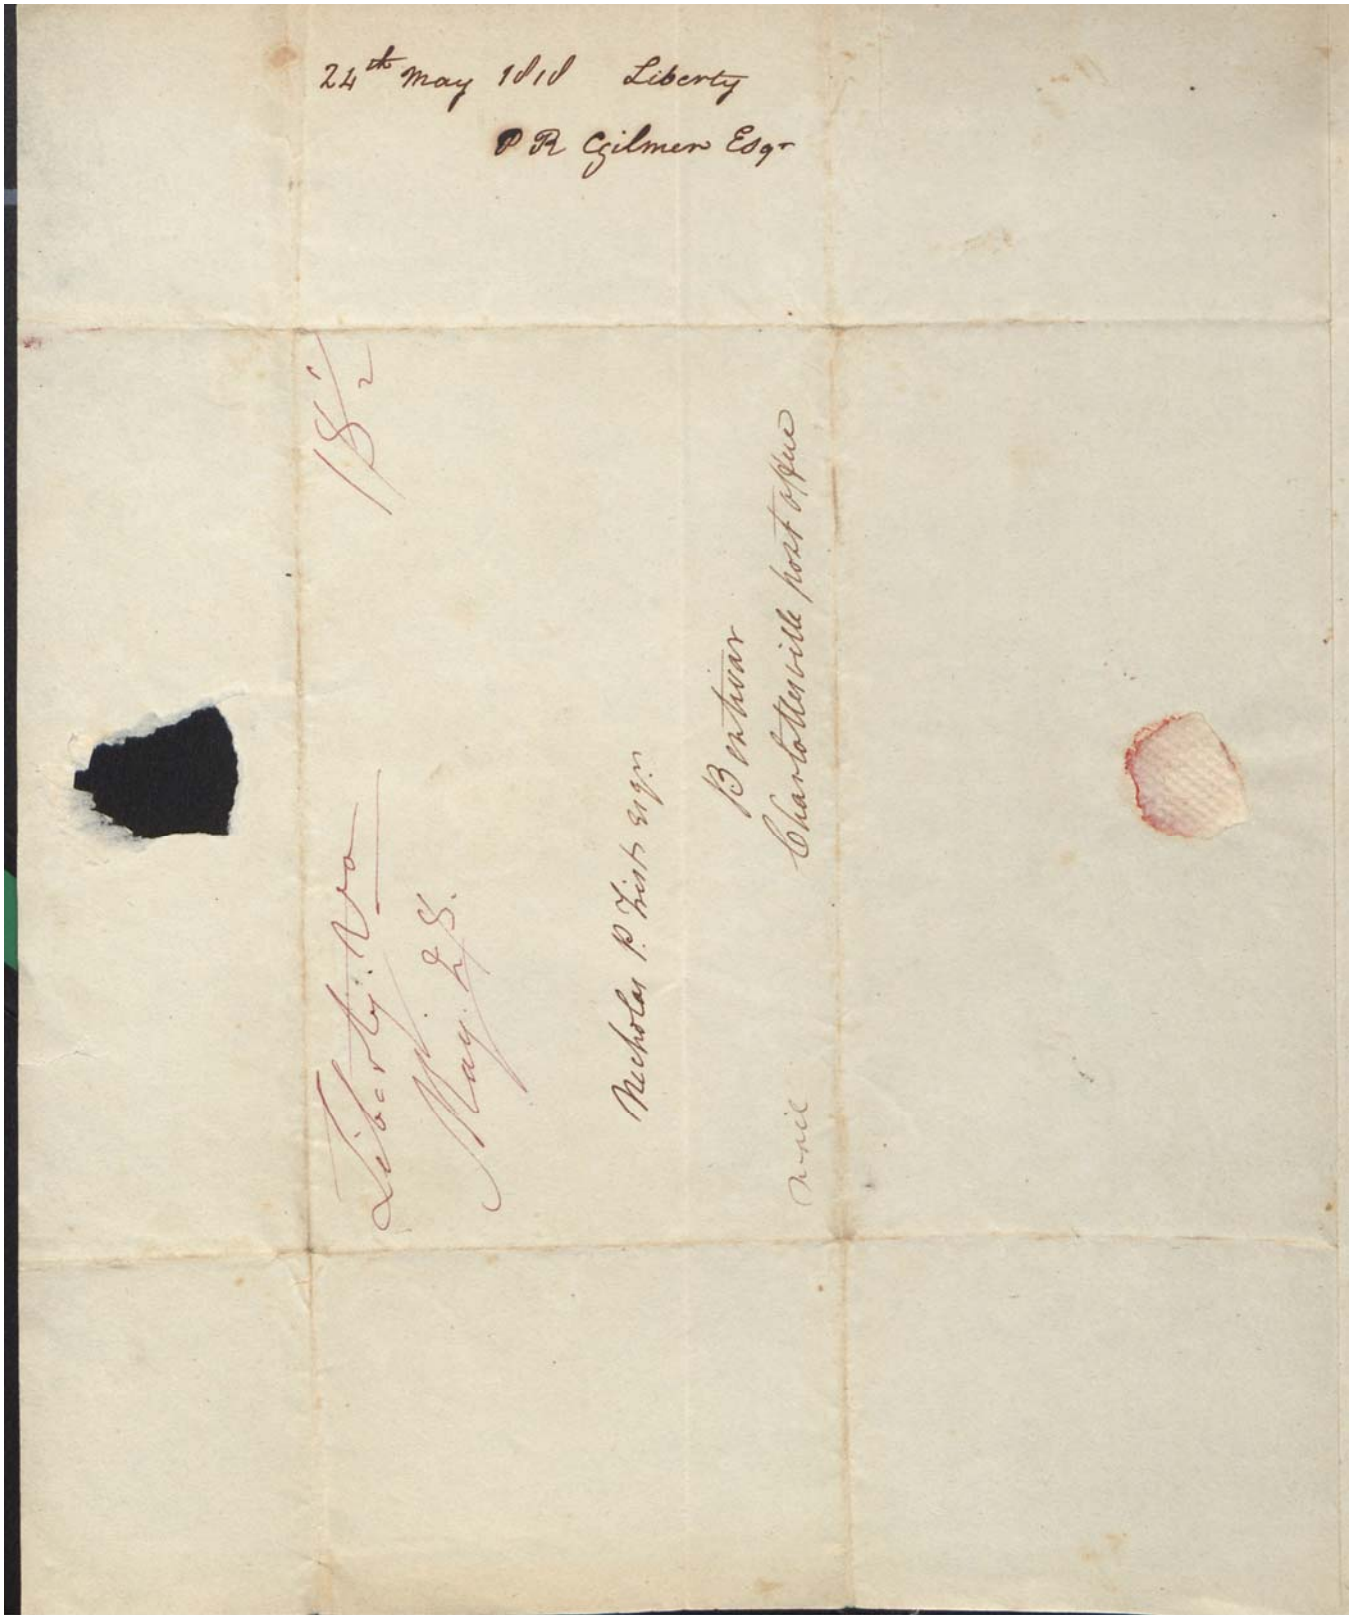 24th May 1818 Liberty
P R Gilmer Esqr
18 1/2
Liberty. Va
May. 28.
Nicholas P. Trist esqr.
Bentivar
Charlottesville post office
mail